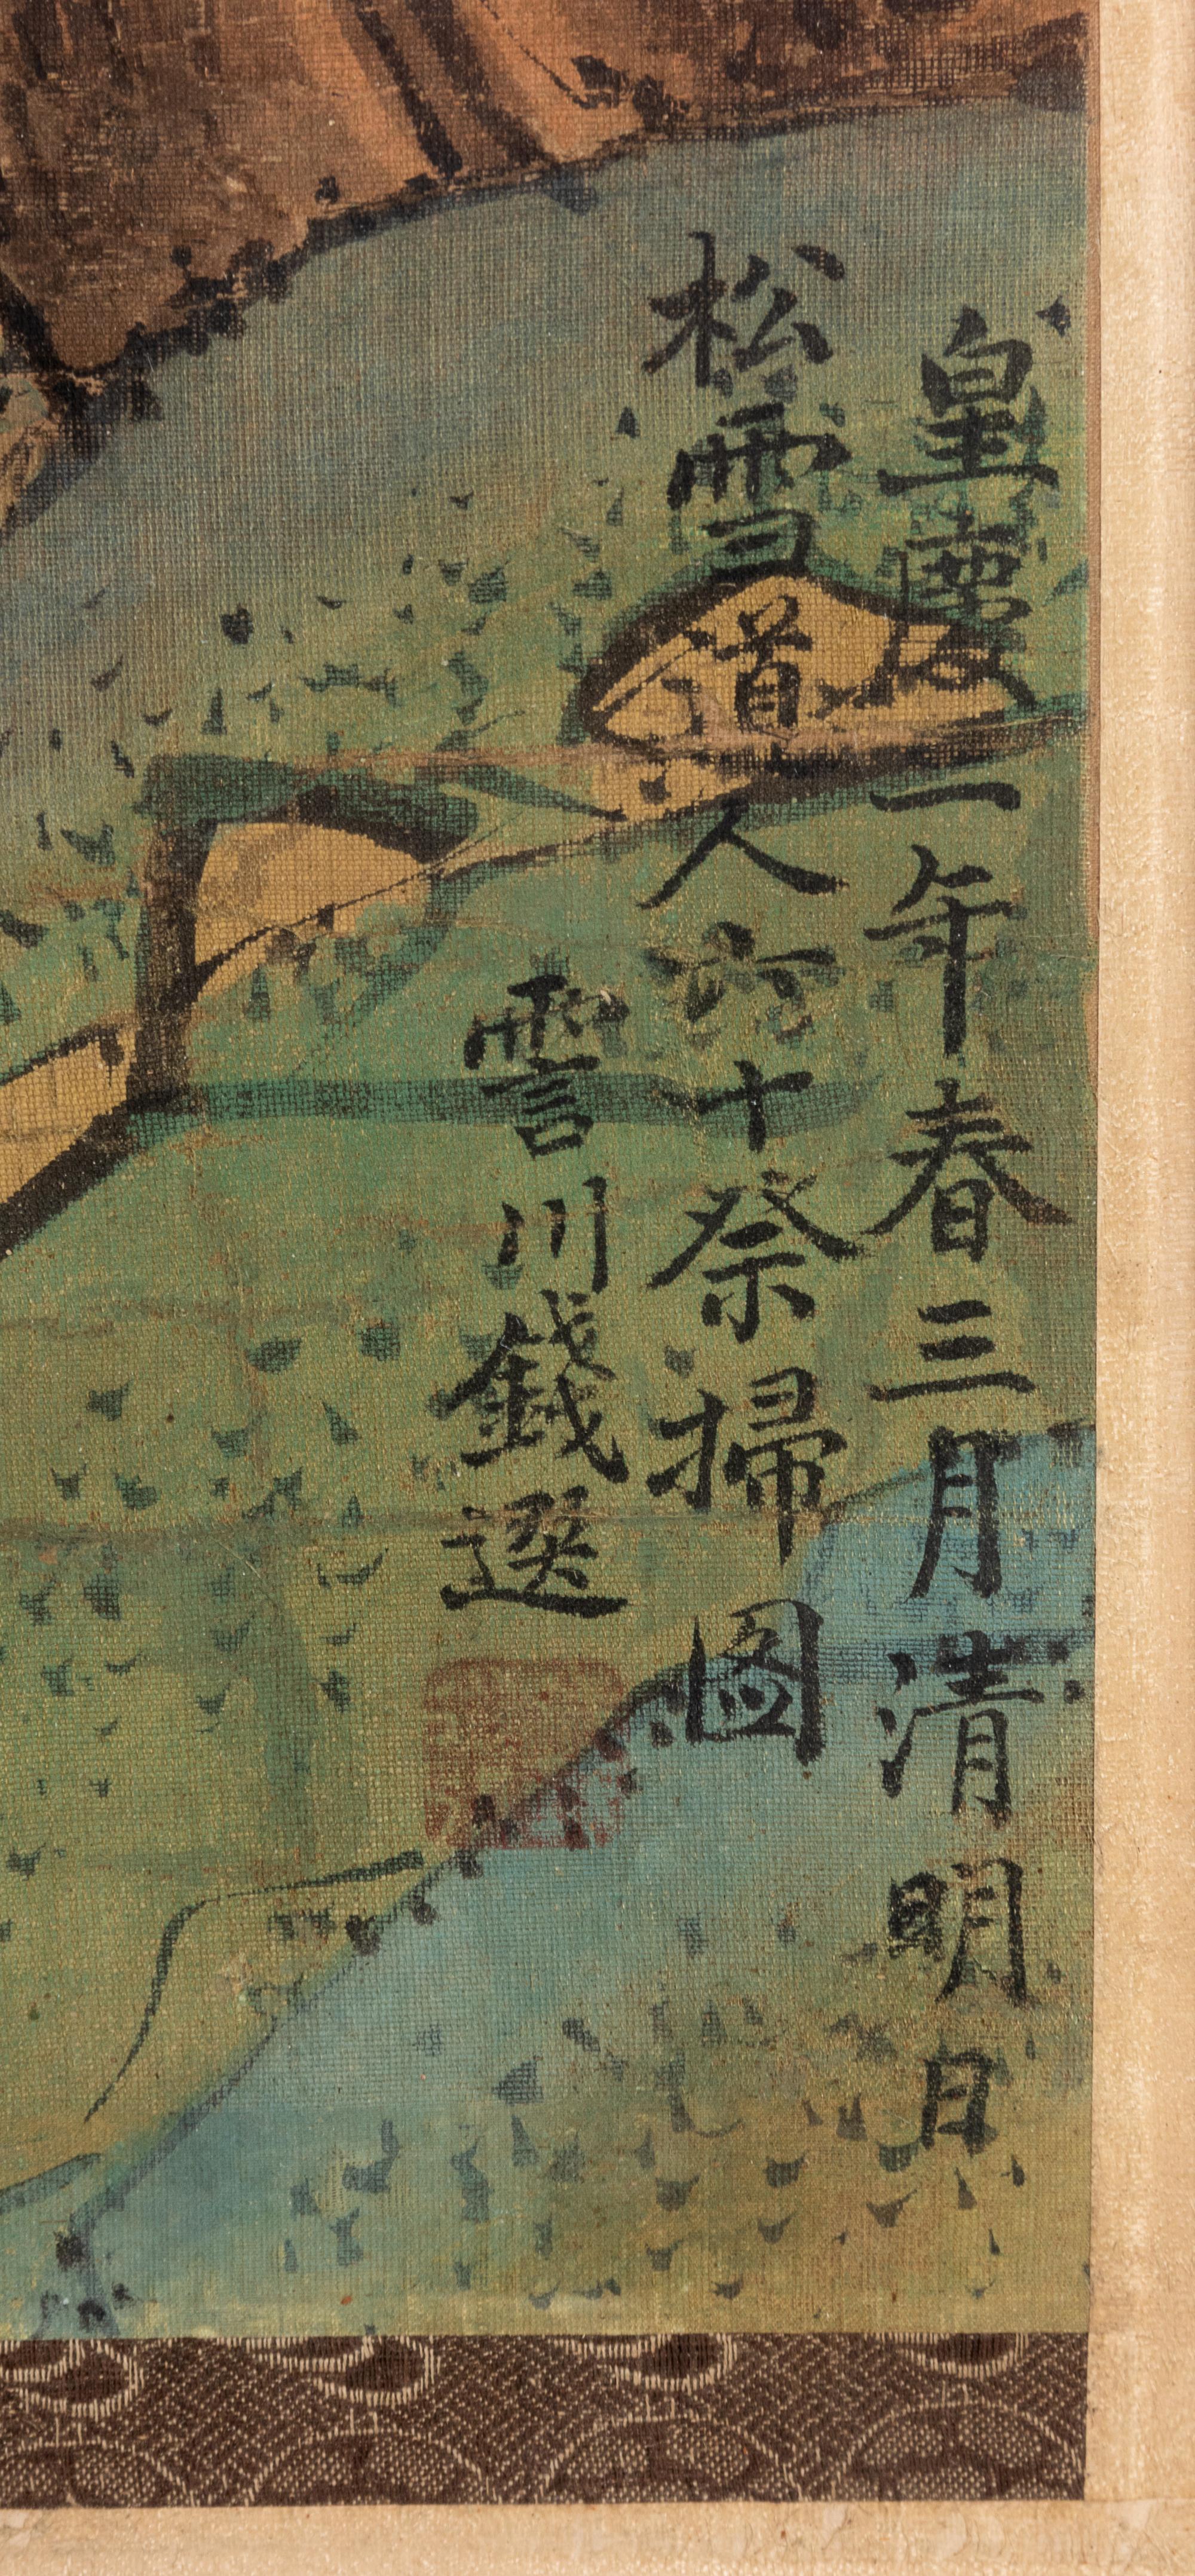 皇慶一年春三月清明日
松雪道人六十祭掃圖
霅川錢選